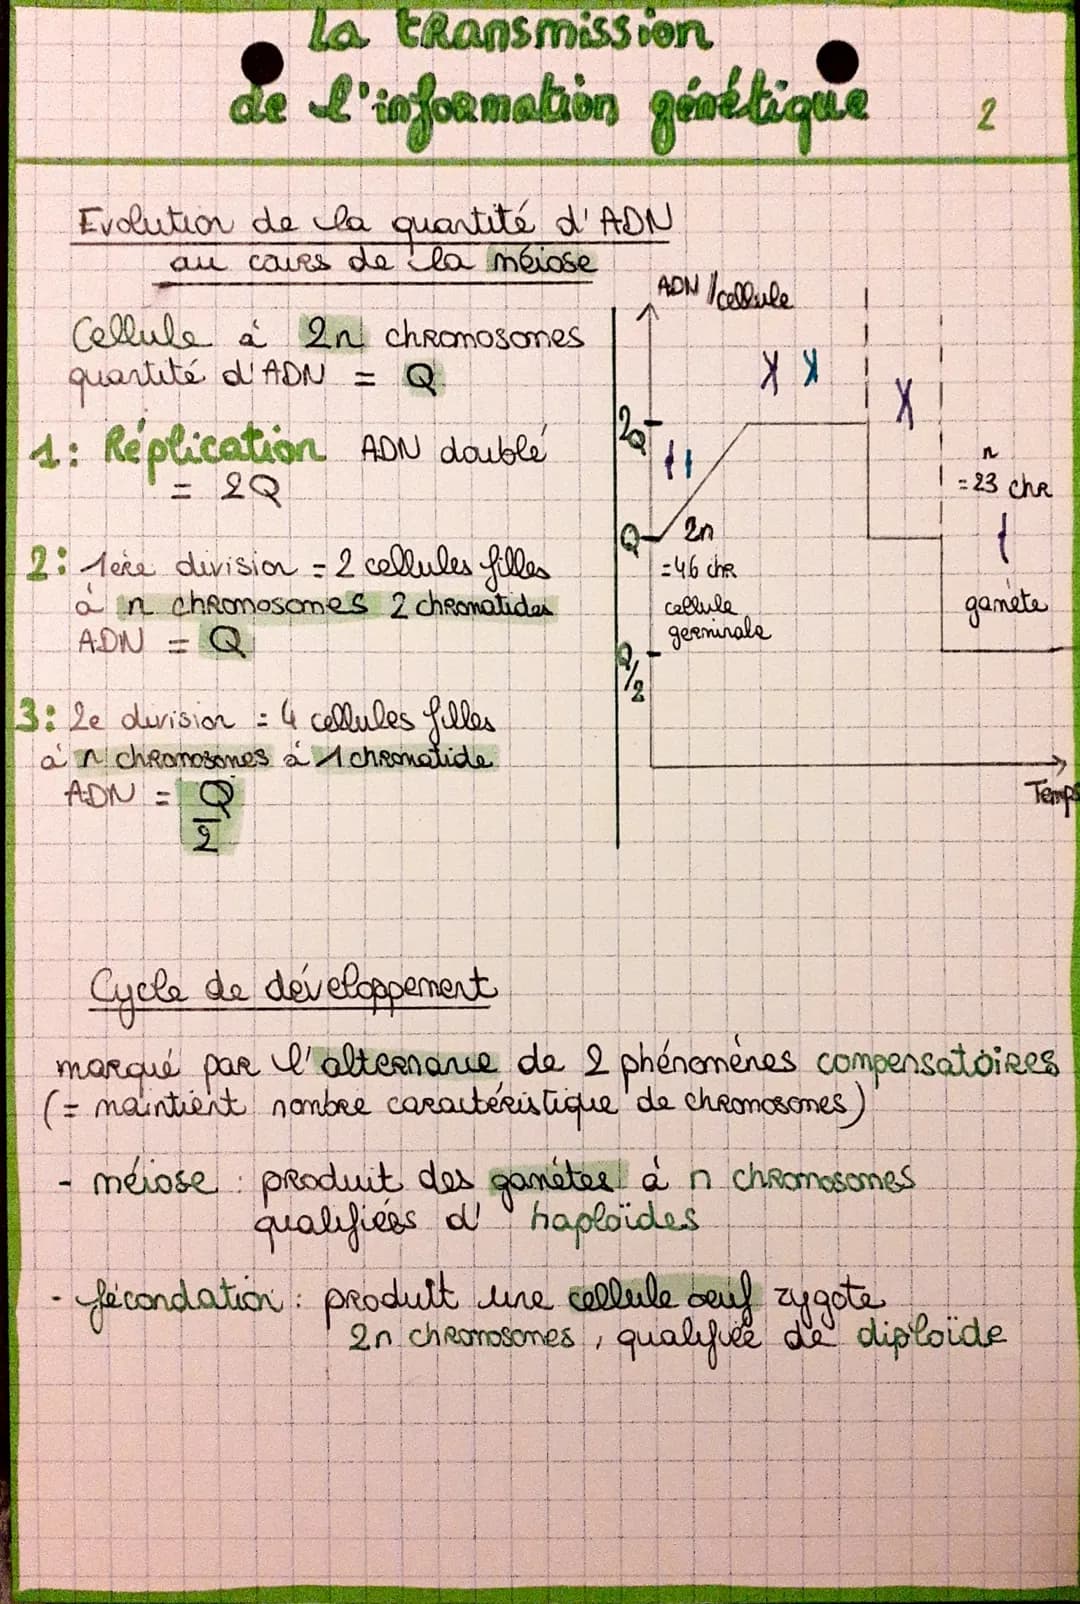 La transmission
de l'information génétique
2
Evolution de la quantité d'ADN
au cours de la méiose
Cellule à 2n chromosomes
quantité d'ADN = Q
1: Réplication ADN doublé
= 2Q
2: 1ère division = 2 cellules filles
à n chromosomes 2 chromatides
ADN = Q
3: 2e division = 4 cellules filles
à n chromosomes à 1 chromatide
ADN = Q
2
ADN / cellule
2Q
Q
2n
= 46 chr
cellule
germinale
n
= 23 chr
gamète
Q/2
Temps
Cycle de développement
marqué par l'alternance de 2 phénomènes compensatoires
(= maintient nombre caractéristique de chromosomes)
- méiose : produit des gamètes à n chromosomes
qualifiées d' haploïdes
- fécondation : produit une cellule oeuf zygote
2n chromosomes, qualifiée de diploïde